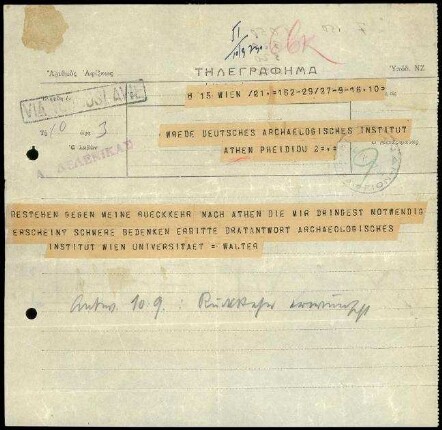 Ἀριθμὸς Ἀφίξεως
ΤΗΛΕΓΡΑΦΗΜΑ
8 15 WIEN /21.=162-29/27-9-16.10=
WREDE DEUTSCHES ARCHAELOGISCHES INSTITUT
ATHEN PHEIDIOU 2=.=
BESTEHEN GEGEN MEINE RUECKKEHR NACH ATHEN DIE MIR DRINGEST NOTWENDIG
ERSCHEINT SCHWERE BEDENKEN ERBITTE DRATANTWORT ARCHAEOLOGISCHES
INSTITUT WIEN UNIVERSITAET = WALTER
Antw. 10 9. : Rückkehr erwünscht